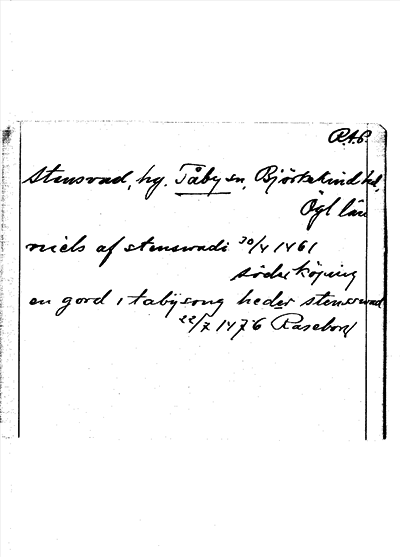 R.A.P.
Stensvad, hg. Tåby sn, Björkekind hd,
Ögl län
niels af stenswadi 30/4 1461
söderköping
en gord i tabysong heder stenswad
22/7 1476 Raseborg